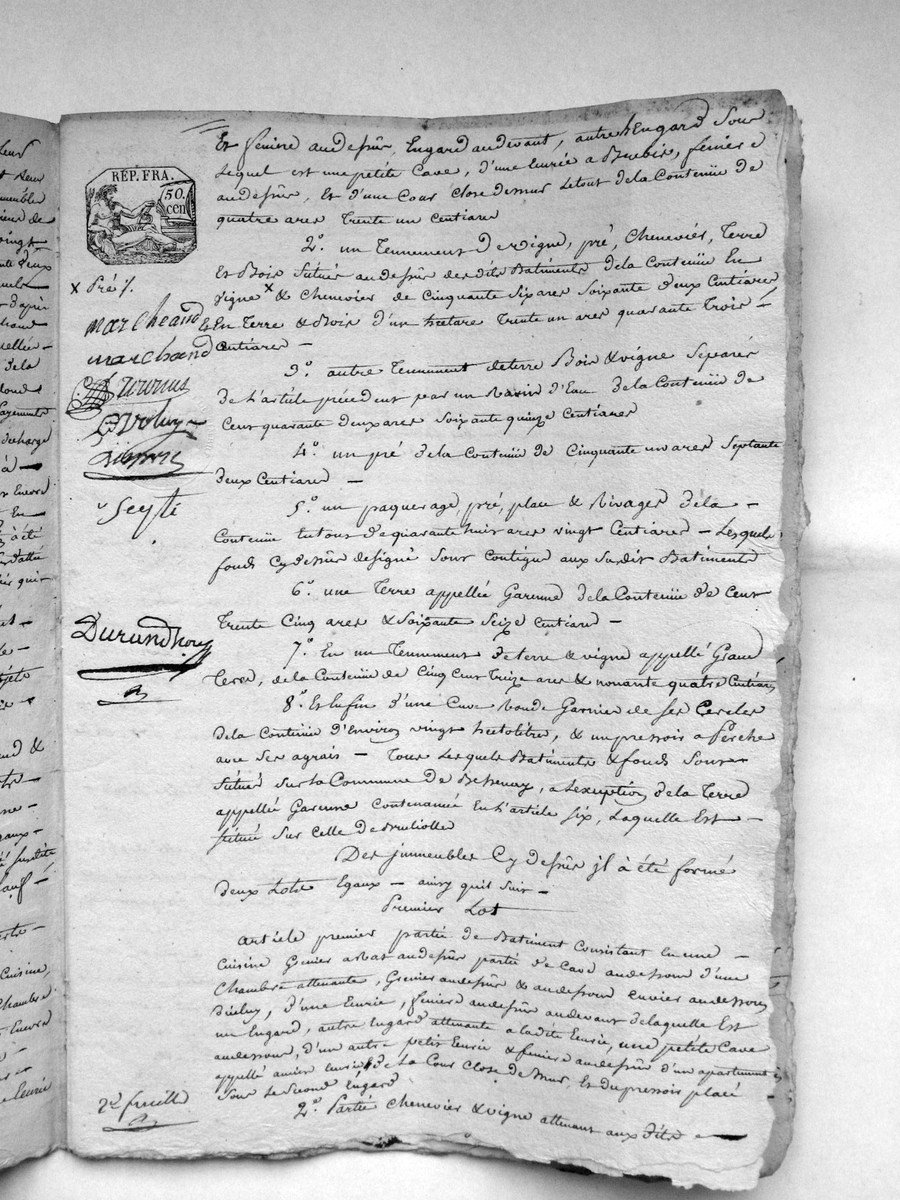 Et fénière audessûs, Engard audevant, autre Engard sous
Lequel est une petite Cave, d'une Eurie a Brebis, feniere
audessûs, Et d'une Cour Close demur Letout dela Contenüe de
quatre ares Trente un Centiares
2.° un Tennement De vigne, pré, Chenevier, Terre
Et Bois Sitüé audessûs des dits Batiments dela Contenüe En
vigne x & Chenevier de Cinquante Six ares Soixante deux Centiares
& En Terre & Bois d'un hectare Trente un ares quarante Trois –
Centiares –
3.° autre Tennement deterre Bois & vigne Separés
de L'article précédent par un Ravin d'Eau dela Contenüe de
Cent quarante deux ares Soixante quinze Centiares
4.° un pré dela Contenüe de Cinquante un ares Septante
deux Centiares –
5.° un paquerage, pré, place & Rivages dela –
Contenüe en tout de quarante huit ares vingt Centiares – Lesquels
fonds Cy dessûs designé Sont Contigus aux Susdits Batiments
6.° une Terre appellée Garenne dela Contenüe de Cent
Trente Cinq ares & Soixante Seize Centiares –
7.° Et un Tennement deterre & vigne appellé
Terre, de la Contenüe de Cinq Cent Treize ares & nonante quatre Centiares
8.° Et Enfin d'une Cuve Ronde Garnie de Ses Cercles
dela Contenüe d'Environ vingt hectolitre, & un pressoir a Perche
avec Ses agrais – Tous Lesquels Batiments & fonds Sont –
Sitüés Sur La Commune De Bessenay, a L'exeption dela Terre
appellée Garenne Contenance En L'article Six, Laquelle Est –
Sitüée Sur Celle de Brulliolle
Des jmmeubles Cy dessûs jl à été formé
deux Lots Egaux – ainsy quil Suit –
Premier Lot
Article premier partie de Batiment Consistant En une –
Cuisine Grenier a Bas audessûs partie de Cave audessous d'une
Chambre attenante, Grenier audessûs & audessous cuvier audessous
d'une Eurie, fénier audessûs audevant delaquelle Est
un Engard, autre Engard attenante a ladite Eurie, une petite Cave
audessous, d'un autre petit Eurie & feniere audessûs d'un apartement
appellé Eurie, de La Cour Close de Mur, Et du pressoir placé
Sous Le Second Engard
2.° Partie Chenevier & vigne attenant aux dits –
RÉP. FRA.
50.
cen
x Pré /.
marcheand
marchand
Seyti
Durandnore
2.e feuille